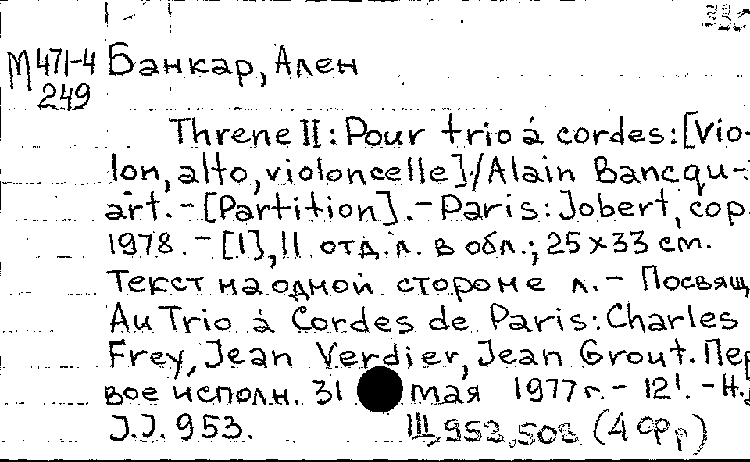 М471-4 Банкар, Ален
249
Threne II: Pour trio á cordes: [Vio-
lon, alto, violoncelle] / Alain Bancqu-
art. - [Partition]. - Paris: Jobert, cop.
1978. - [1], 11 отд. л. в обл.; 25 x 33 cm.
Текст на одной стороне л. - Посвящ
Au Trio á Cordes de Paris: Charles
Frey, Jean Verdier, Jean Grout. Пер
вое исполн. 31 мая 1977 г. - 12'. - Н.
J.J. 953. Щ 953.508 (4 фр)